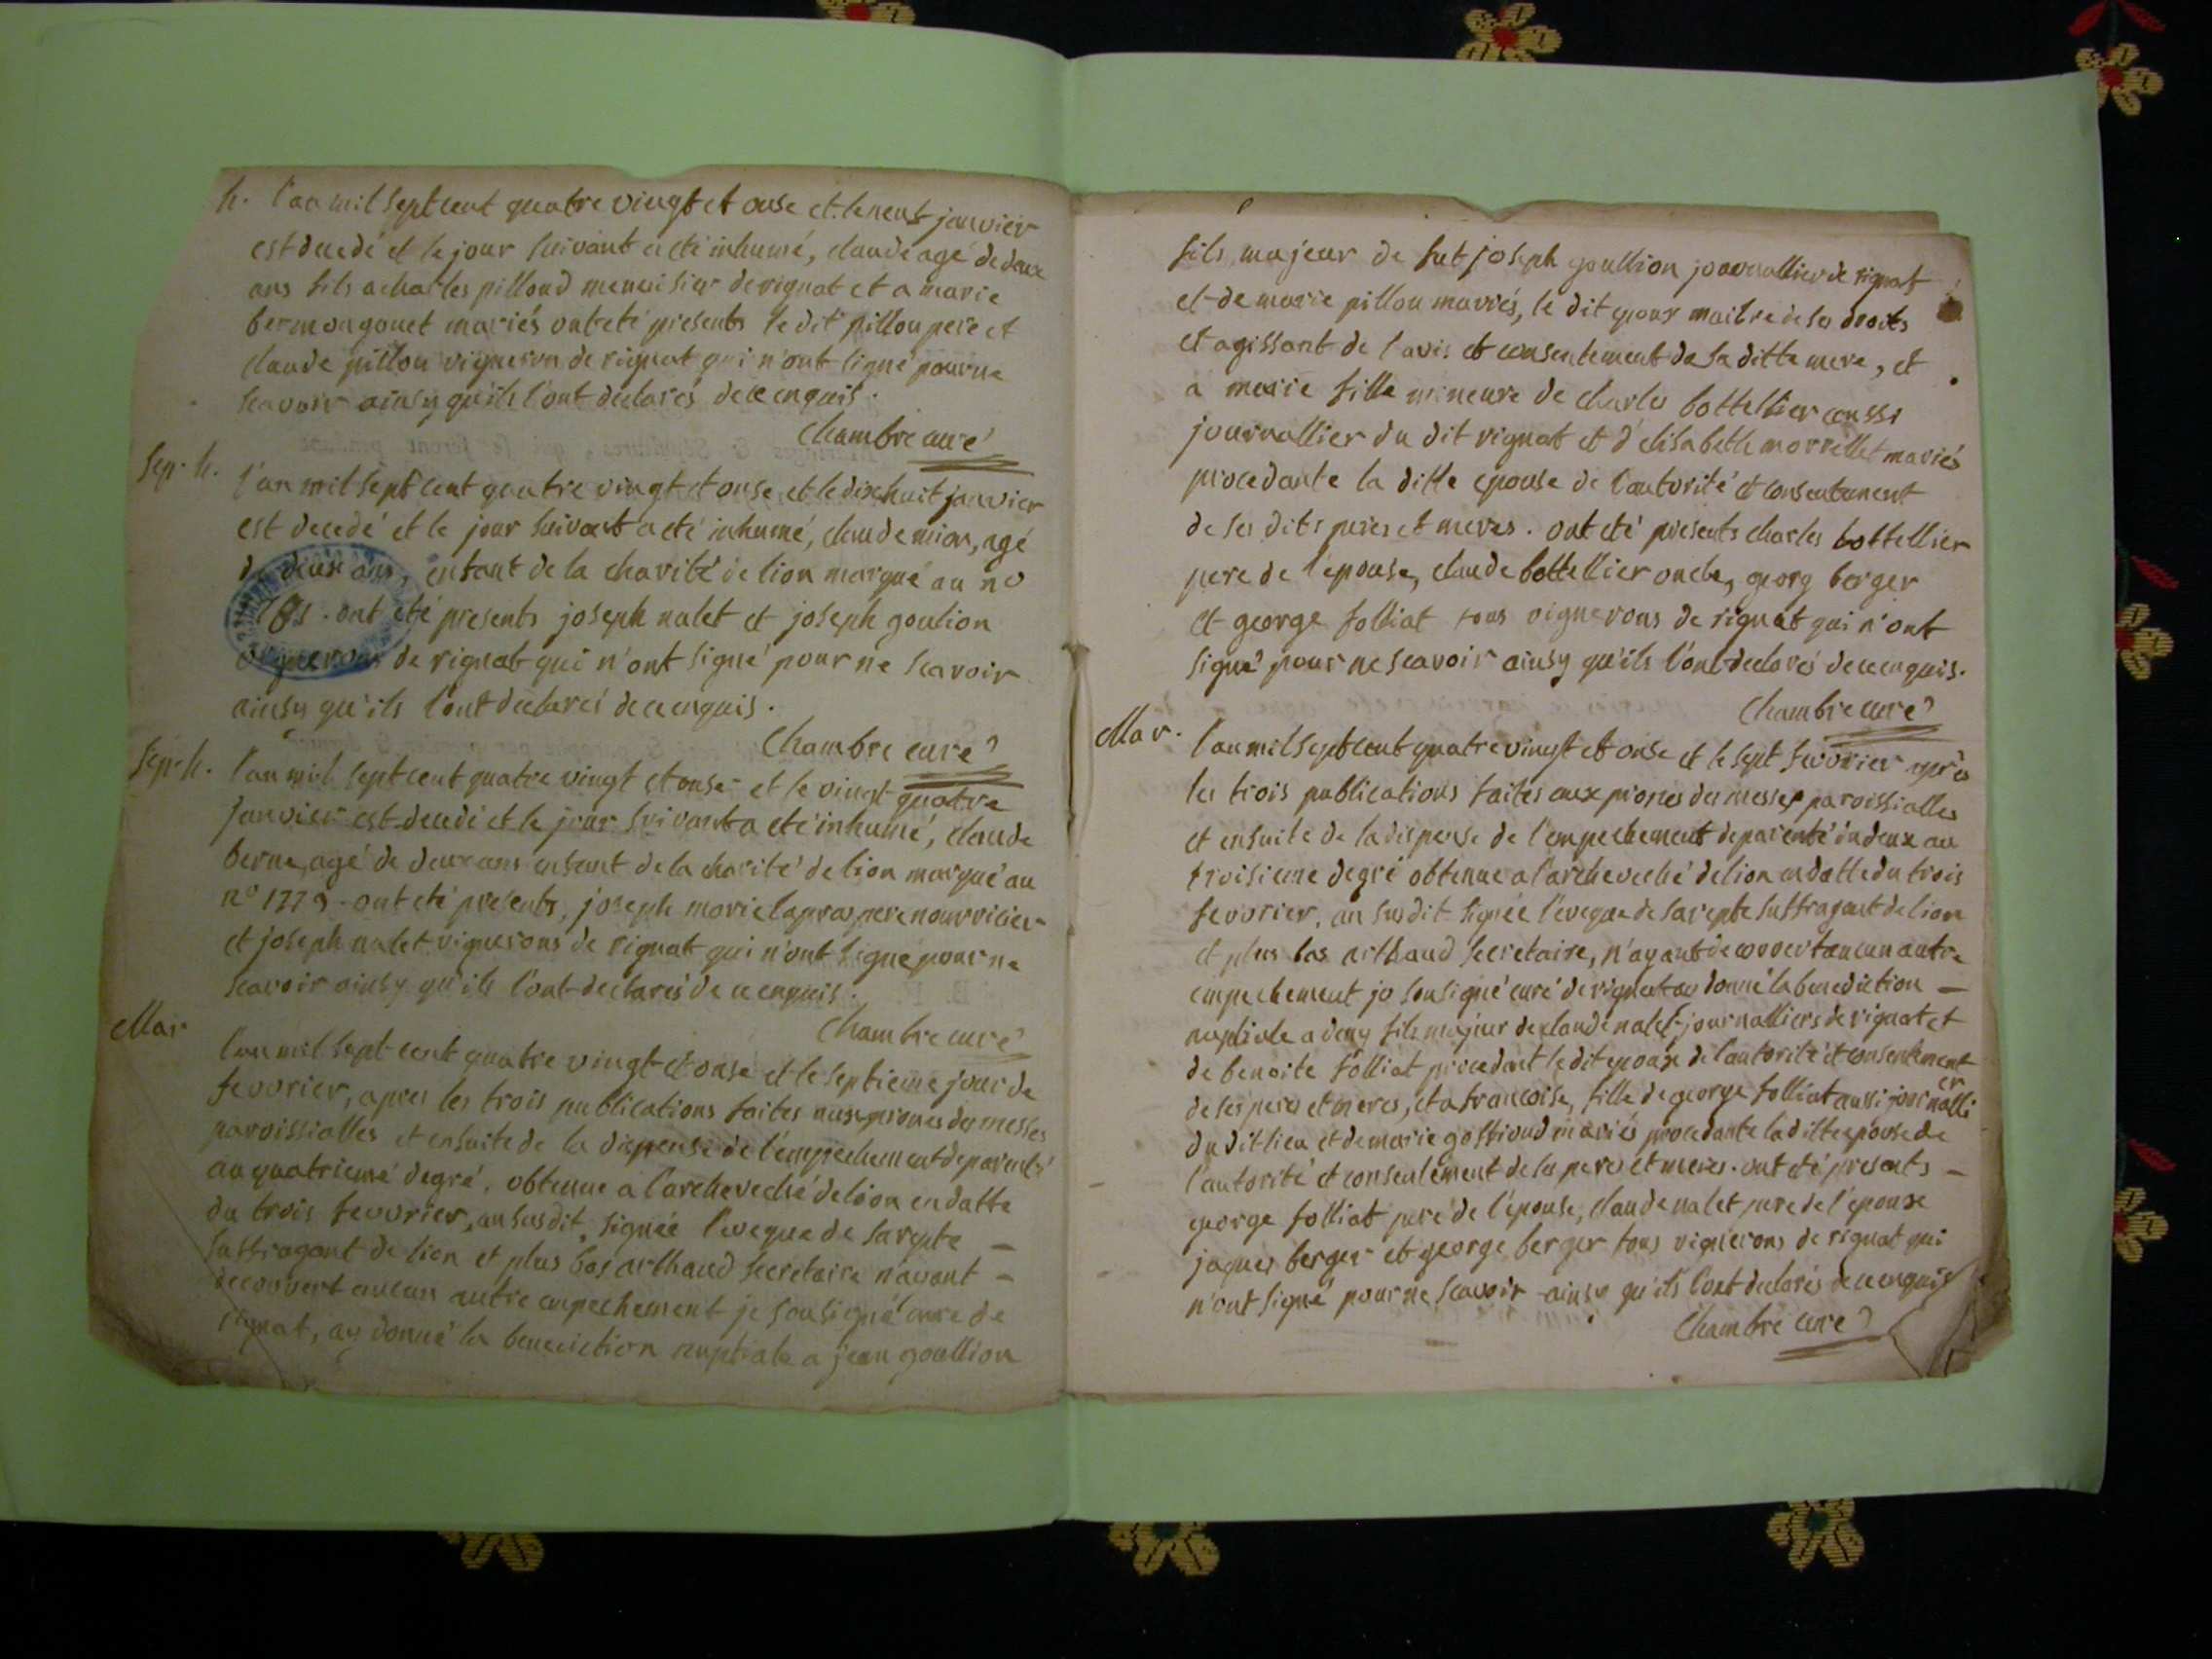 h. l'an mil sept cent quatre vingt et onse et le neuf janvier
est decedé et le jour suivant a eté inhumé, claude agé de deux
ans fils a charles pilloud menuisier de rignat et a marie
bermongonet mariés ont eté presents le dit pillou pere et
claude pillou vigneron de rignat qui n'ont signé pour ne
scavoir ainsy qu'ils l'ont declarés de ce enquis.
Chambre curé
Sep. h. l'an mil sept cent quatre vingt et onse et le dixhuit janvier
est decedé et le jour suivant a eté inhumé, claude mion, agé
de deux ans, enfant de la charité de lion marqué au no
ont eté presents joseph nalet et joseph goulion
vignerons de rignat qui n'ont signé pour ne scavoir
ainsy qu'ils l'ont declarés de ce enquis.
Chambre curé
Sep. h. l'an mil sept cent quatre vingt et onse et le vingt quatre
janvier est decedé et le jour suivant a eté inhumé, claude
berne, agé de deux ans enfant de la charité de lion marqué au
n° 1779 - ont eté presents, joseph marie lapras pere nourricier
et joseph nalet vignerons de rignat qui n'ont signé pour ne
scavoir ainsy qu'ils l'ont declarés de ce enquis.
Chambre curé
Mar l'an mil sept cent quatre vingt et onse et le septieme jour de
fevvrier, apres les trois publications faites aux prones des messes
paroissialles et ensuite de la dispense de l'empechement de parenté
au quatrieme degré, obtenue a l'archeveché de lion en datte
du trois fevvrier, an susdit, signée l'eveque de sarepte -
suffragant de lion et plus bas arthaud secretaire n'ayant -
decouvert aucun autre empechement je sousigné curé de
rignat, ay donné la benediction nuptiale a jean goullion
fils majeur de fut joseph goullion journallier de rignat
et de marie pillou mariés, le dit epoux maitre de ses droits
et agissant de l'avis et consentement de sa ditte mere, et
a marie fille mineure de charles bottellier aussi
journallier du dit rignat et d'elisabeth morrellet mariés
procedante la ditte epouse de l'autorité et consentement
de ses dits peres et meres. ont eté presents charles bottellier
pere de l'epouse, claude bottellier oncle, georg berger
et george folliat tous vignerons de rignat qui n'ont
signé pour ne scavoir ainsy qu'ils l'ont declarés de ce enquis.
Chambre curé
Mar. l'an mil sept cent quatre vingt et onse et le sept fevvrier après
les trois publications faites aux prones des messes paroissialles
et ensuite de la dispense de l'empechement de parenté du deux au
troisieme degré obtenue a l'archeveché de lion en datte du trois
fevvrier, an susdit signée l'eveque de sarepte suffragant de lion
et plus bas arthaud secretaire, n'ayant decouvert aucun autre
empechement je sousigné curé de rignat ay donné la benediction -
nuptiale a deny fils majeur de claude nalet journalliers de rignat et
de benoite folliat procedant le dit epoux de l'autorité et consentement
de ses peres et meres, et a francoise, fille de george folliat aussi journallier
du dit lieu et de marie mariés procedante la ditte epouse de
l'autorité et consentement de ses peres et meres. ont eté presents -
george folliat pere de l'epouse, claude nalet pere de l'epoux
jaques berger et george berger tous vignerons de rignat qui
n'ont signé pour ne scavoir ainsy qu'ils l'ont declarés de ce enquis
Chambre curé